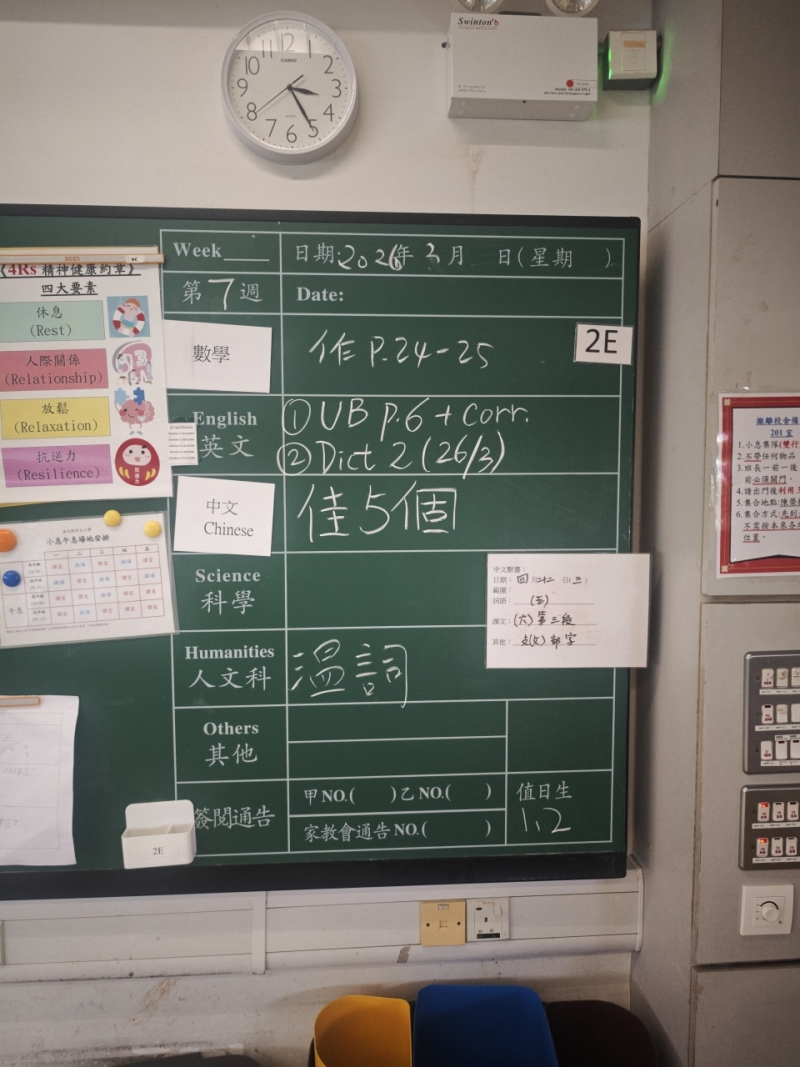 12
1
2
3
4
5
6
7
8
9
10
11
CASIO
Swinton
《4Rs 精神健康約章》
四大要素
休息
(Rest)
人際關係
(Relationship)
放鬆
(Relaxation)
抗逆力
(Resilience)
小息午息場地安排
一 二 三 四 五
午息
Week
日期:2026年3月 日(星期 )
第7週
Date:
數學
作 P.24-25
2E
English
英文
① UB p.6 + corr.
② Dict 2 (26/3)
中文
Chinese
佳5個
Science
科學
Humanities
人文科
溫詞
中文默書:
日期: 四月廿二日(三)
範圍:
詞語: (五)
課文: (六) 第三段
其他:
Others
其他
簽閱通告
甲NO.( )乙NO.( )
家教會通告NO.( )
值日生
1,2
2E
撤離校舍備
201室
1.小息集隊(雙行
2.不帶任何物品
3.班長一前一後
前必須關門。
4.請出門後利用
5.集合地點:
6.集合方式:
不需按本來各
位置。